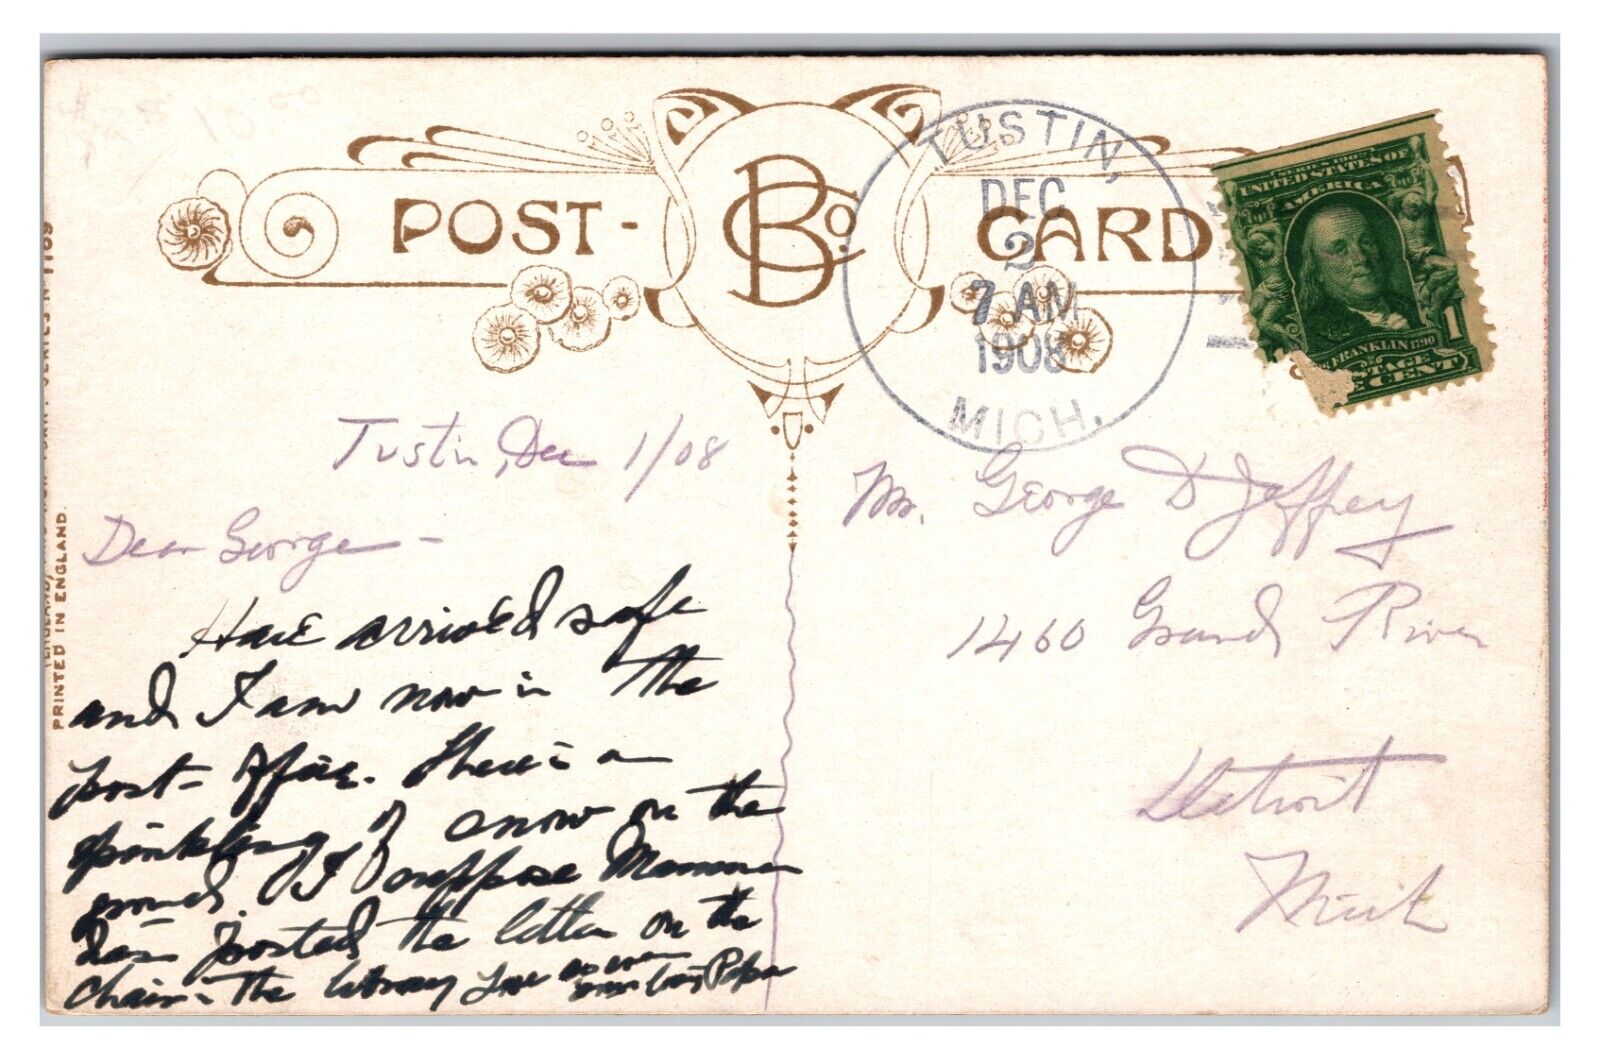 POST-
BC Co.
CARD
TUSTIN,
DEC
2
7 AM
1908
MICH.
SERIES 1902
UNITED STATES OF
AMERICA
1
FRANKLIN 1790
POSTAGE
CENT
PRINTED IN ENGLAND.
Tustin, Dec 1/08
Dear George -
Have arrived safe
and I am now in the
post-office. There is a
sprinkling of snow on the
ground. I suppose Mamma
has posted the letter on the
chair in the library Love as ever
Papa
Mr. George D Jeffrey
1460 Grand River
Detroit
Mich